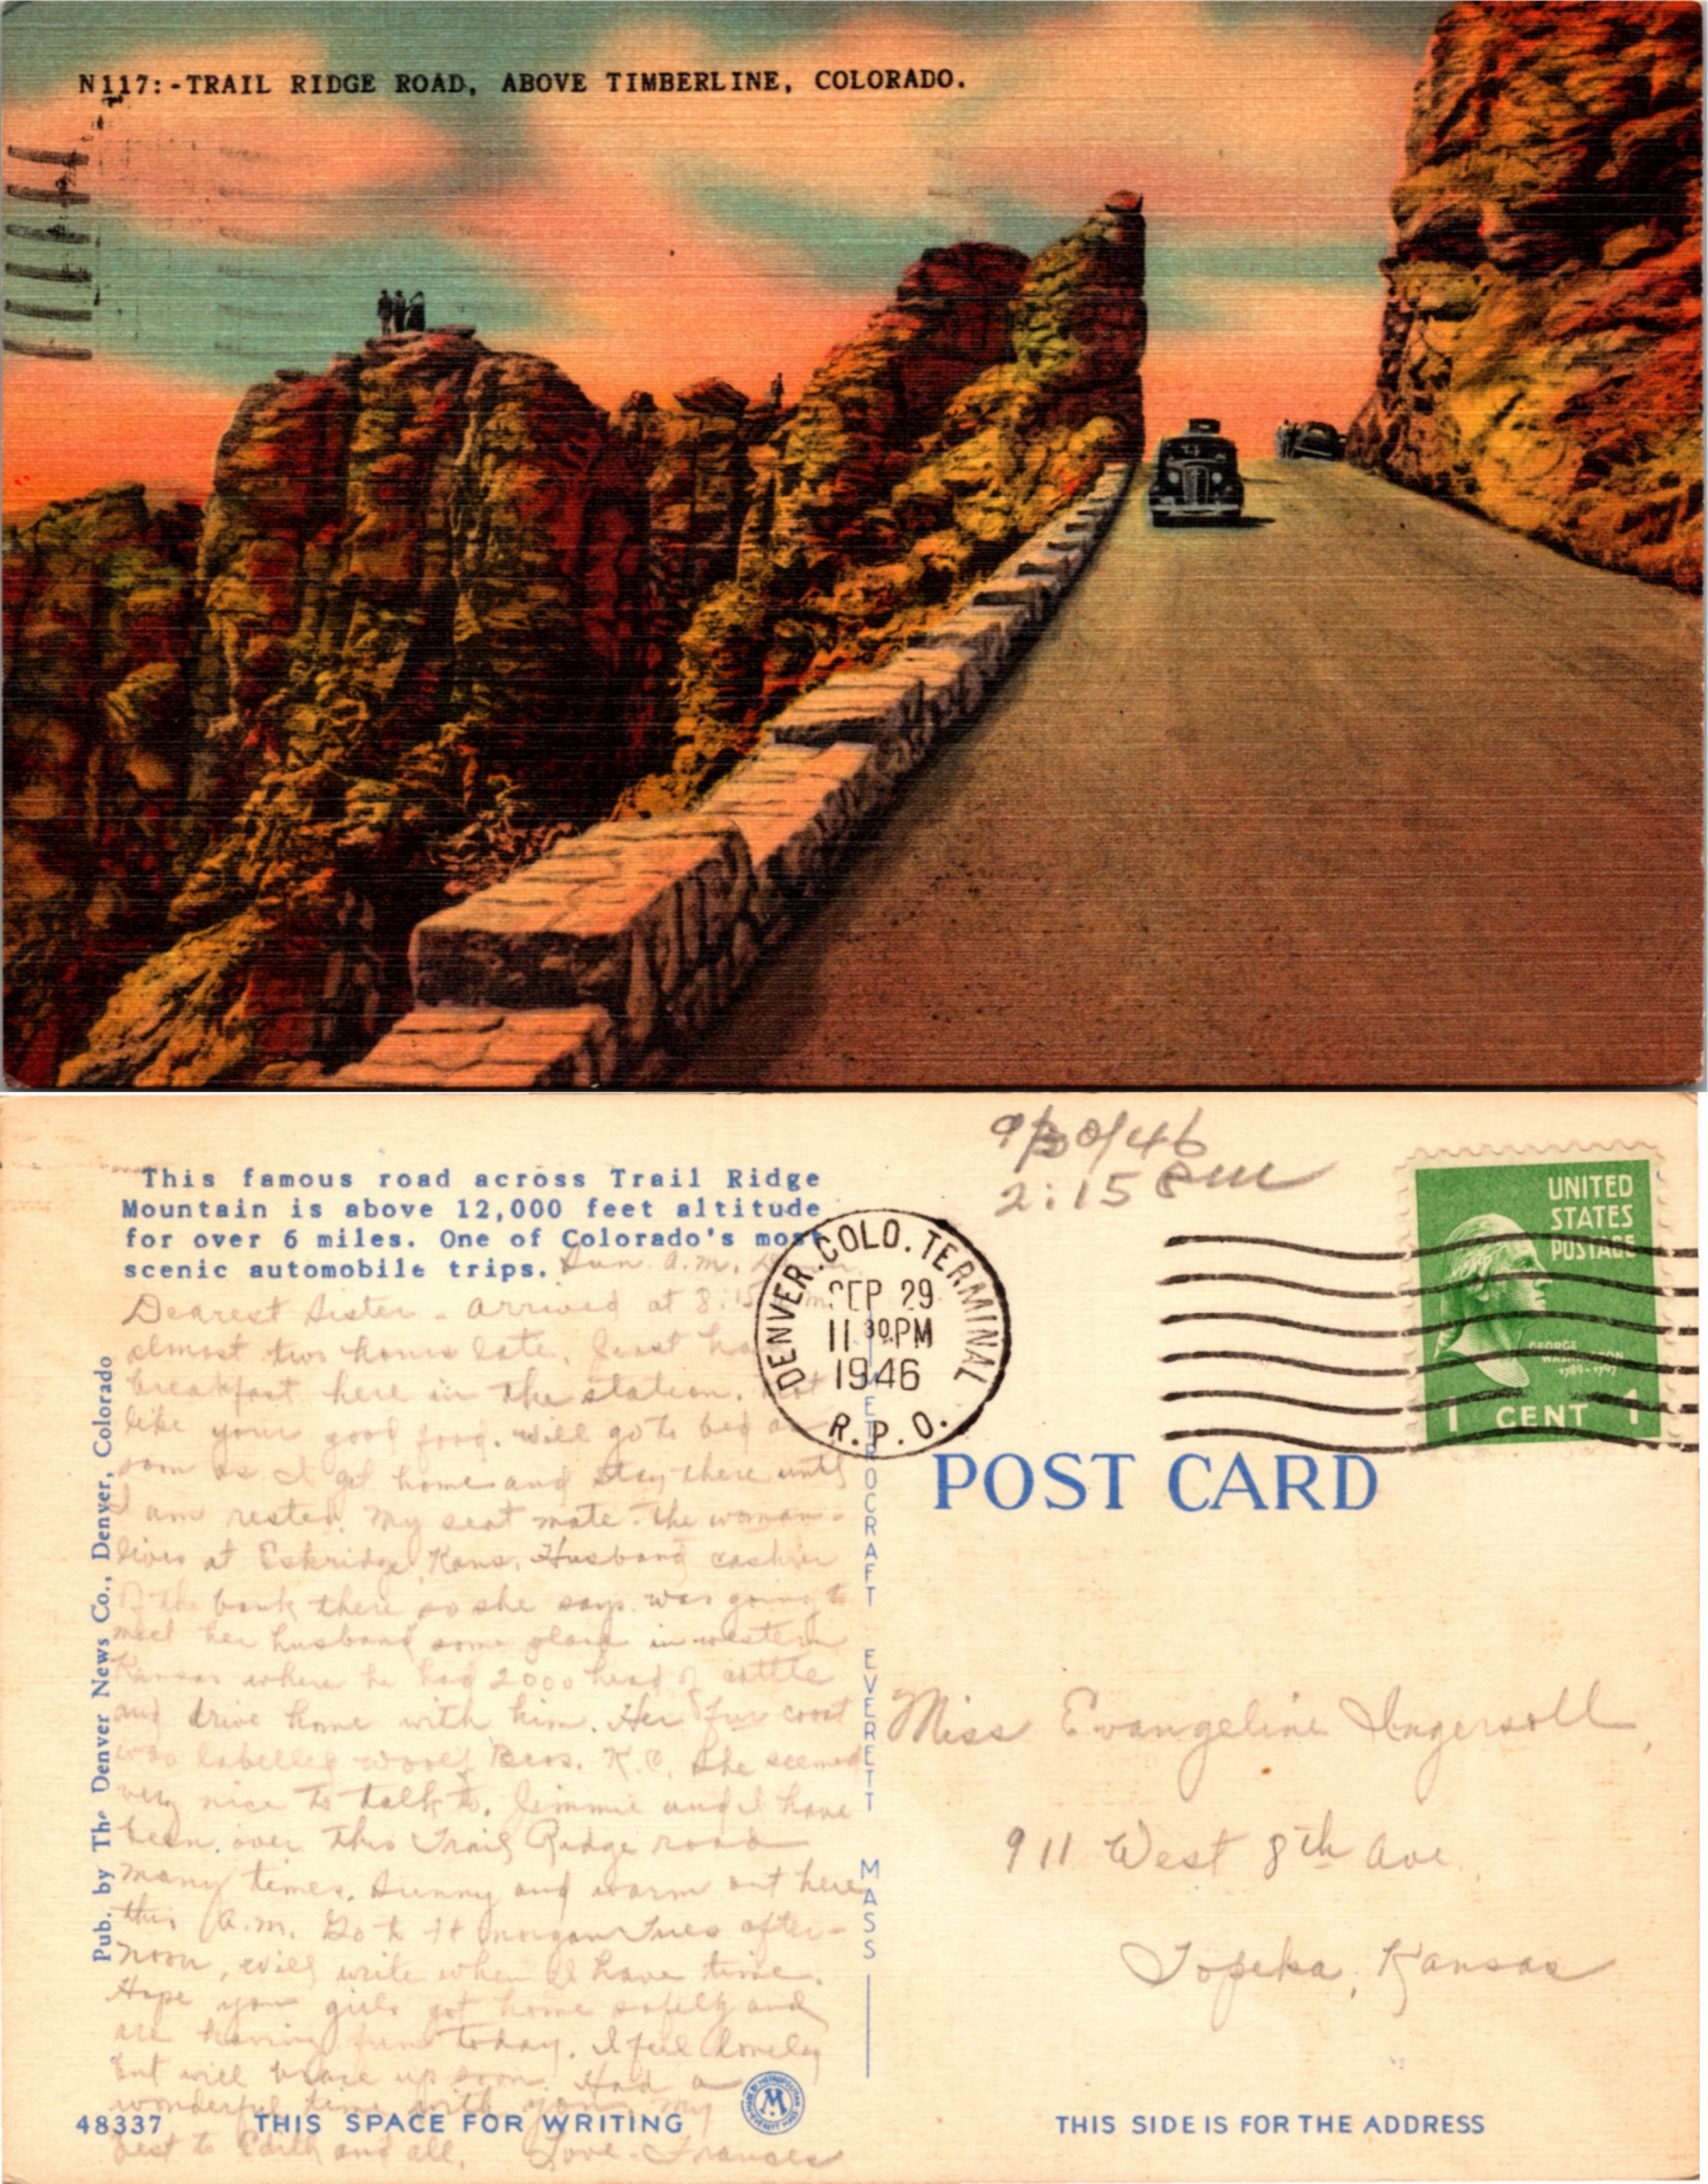 N117:-TRAIL RIDGE ROAD, ABOVE TIMBERLINE, COLORADO.
This famous road across Trail Ridge
Mountain is above 12,000 feet altitude
for over 6 miles. One of Colorado's most
scenic automobile trips.
Sun. a.m.
Dearest Sister - arrived at 8:15
almost two hours late. Just
breakfast here in the station.
like your good food. Will go to bed as
soon as I get home and stay there until
I am rested. My seat mate - the woman -
lives at Eskridge, Kans. Husband cashier
of the bank there so she says. was going to
meet her husband some place in western
Kansas where he had 2000 head of cattle
and drive home with him. Her fur coat
was labelled Woolf Bros. K.C. She seemed
very nice to talk to. Jimmie and I have
been over this Trail Ridge road
many times. Sunny and warm out here
this a.m. Go to Ft Morgan Tues after-
noon, will write when I have time.
Hope you girls got home safely and
are having fun today. I feel lonely
but will brace up soon. Had a
wonderful time with you. My
best to Edith and all. Love - Frances
Pub. by The Denver News Co., Denver, Colorado
48337
THIS SPACE FOR WRITING
MADE BY METROPOLITAN
M
EVERETT MASS
METROCRAFT EVERETT MASS
9/30/46
2:15 PM
DENVER, COLO. TERMINAL
SEP 29
11 30 PM
1946
R.P.O.
UNITED
STATES
POSTAGE
GEORGE
WASHINGTON
1789-1797
1 CENT 1
POST CARD
Miss Evangeline Ingersoll,
911 West 8th Ave.
Topeka, Kansas
THIS SIDE IS FOR THE ADDRESS